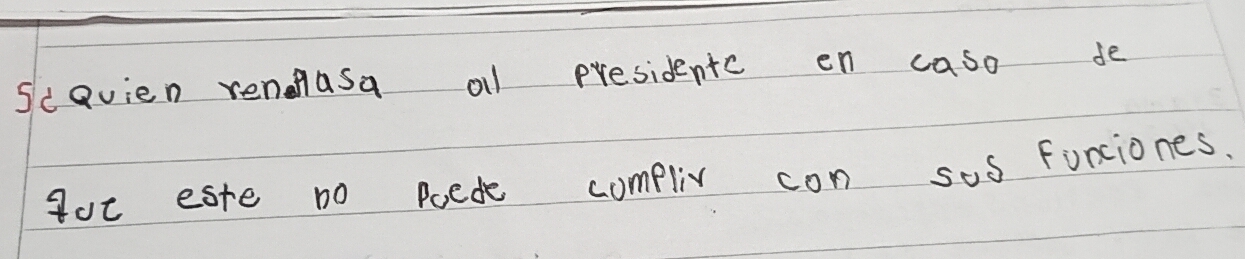 5¿Quien renplasa al presidente en caso de
que este no puede cumplir con sus funciones.